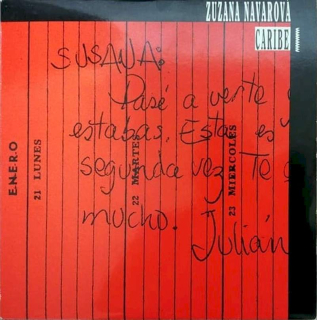 ZUZANA NAVAROVA
CARIBE
SUSANA:
Pasé a verte
estabas. Esta es
segunda vez. Te
mucho. Julián
E.N.E.R.O
21 LUNES
22 MARTES
23 MIERCOLES